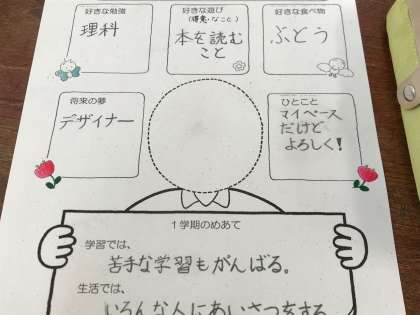 好きな勉強
理科
好きな遊び
(得意なこと)
本を読む
こと
好きな食べ物
ぶどう
将来の夢
デザイナー
ひとこと
マイペース
だけど
よろしく!
1学期のめあて
学習では、
苦手な学習もがんばる。
生活では、
いろんな人にあいさつをする